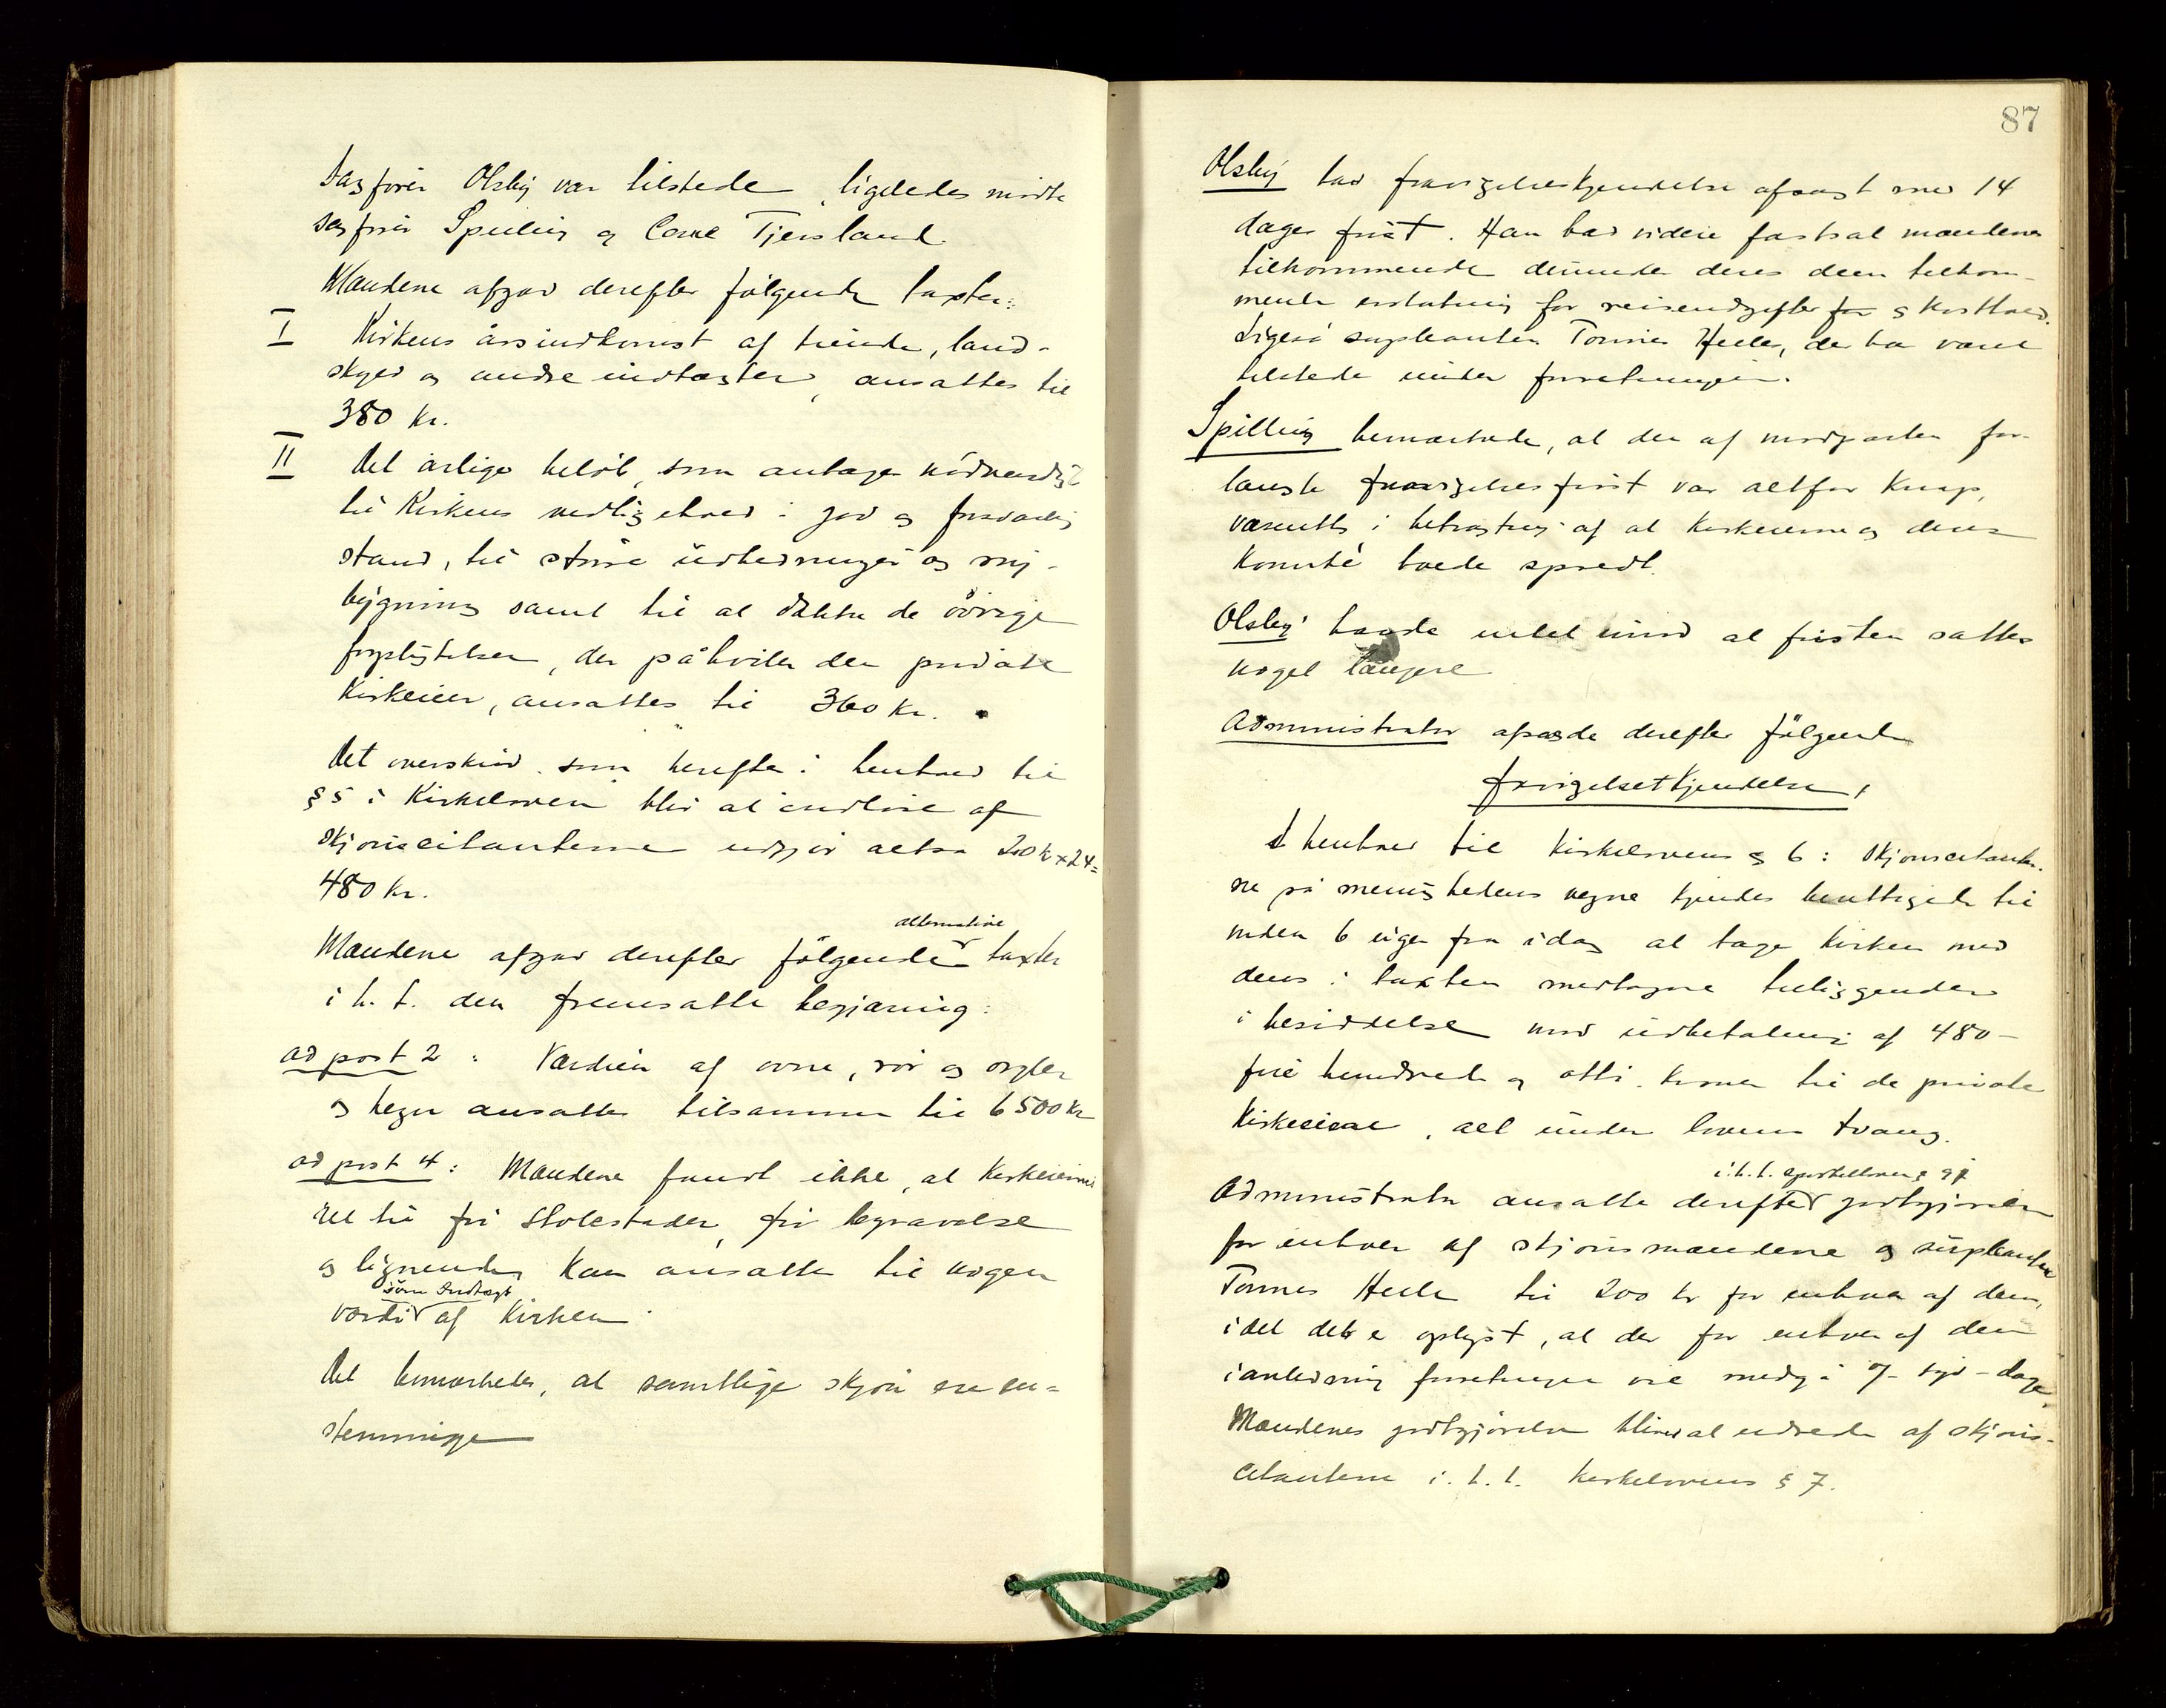 Sagfører Olsby var tilstede, ligeledes mødte
sagfører Spilling og Tjersland.
Mændene afgav derefter følgende taxter:
I Kirkens årsindkomst af tiende, land-
skyld og andre indtægter, ansattes til
380 kr.
II Det årlige beløb, som antages nødvendigt
til Kirkens vedligehold i god og forsvarlig
stand, til større udbedringer og ny-
bygning samt til at dække de øvrige
forpligtelser, der påhviler den private
Kirkeeier, ansattes til 360 kr.
Det overskud som herefter i henhold til
§ 5 i Kirkeloven blir at indløse af
skjønscitanterne udgjør altså 20 kr × 24 =
480 kr.
Mændene afgav derefter følgende alternative taxter
i h. t. den fremsatte begjæring:
ad post 2: Værdien af ovne, rør og orgler
og hegn ansattes tilsammen til 6500 kr
ad post 4: Mændene fandt ikke, at Kirkeeiernes
ret til fri Stolestader, fri begravelse
og lignende, kan ansættes til nogen
værdi som Indtægt af Kirken.
Det bemærkedes, at samtlige skjøn ere en-
stemmige
87
Olsby bad fravigelseskjendelse afsagt med 14
dages frist. Han bad videre fastsat mændenes
tilkommende derunder deres dem tilkom-
mende erstatning for reiseudgifter for og kosthold.
Ligeså supleanten Tønnes Helle, der har været
tilstede under forretningen.
Spilling bemærkede, at den af modparten for-
langte fravigelsesfrist var altfor knap,
væsentlig i betragtning af at Kirkeeierne og deres
Komité boede spredt.
Olsby havde intet imod at fristen sattes
noget længere
Administrator afsagde derefter følgende
fravigelseskjendelse,
I henhold til Kirkelovens § 6: Skjønscitanter-
ne på menighedens vegne kjendes berettigede til
inden 6 uger fra idag at tage Kirken med
dens i taxten medtagne tilliggender
i besiddelse mod udbetaling af 480 -
fire hundrede og otti - kroner til de private
Kirkeeiere, alt under lovens tvang.
Administrator ansatte derefter i h. t. sportellovens § 91 godtgjørelsen
for enhver af skjønsmændene og supleanten
Tønnes Helle til 200 kr for enhver af dem,
idet det er oplyst, at der for enhver af dem
i anledning forretningen vil medgå 7 - syv - dage.
Mændenes godtgjørelse bliver at udrede af skjøns-
citanterne i. h. t. kirkelovens § 7.